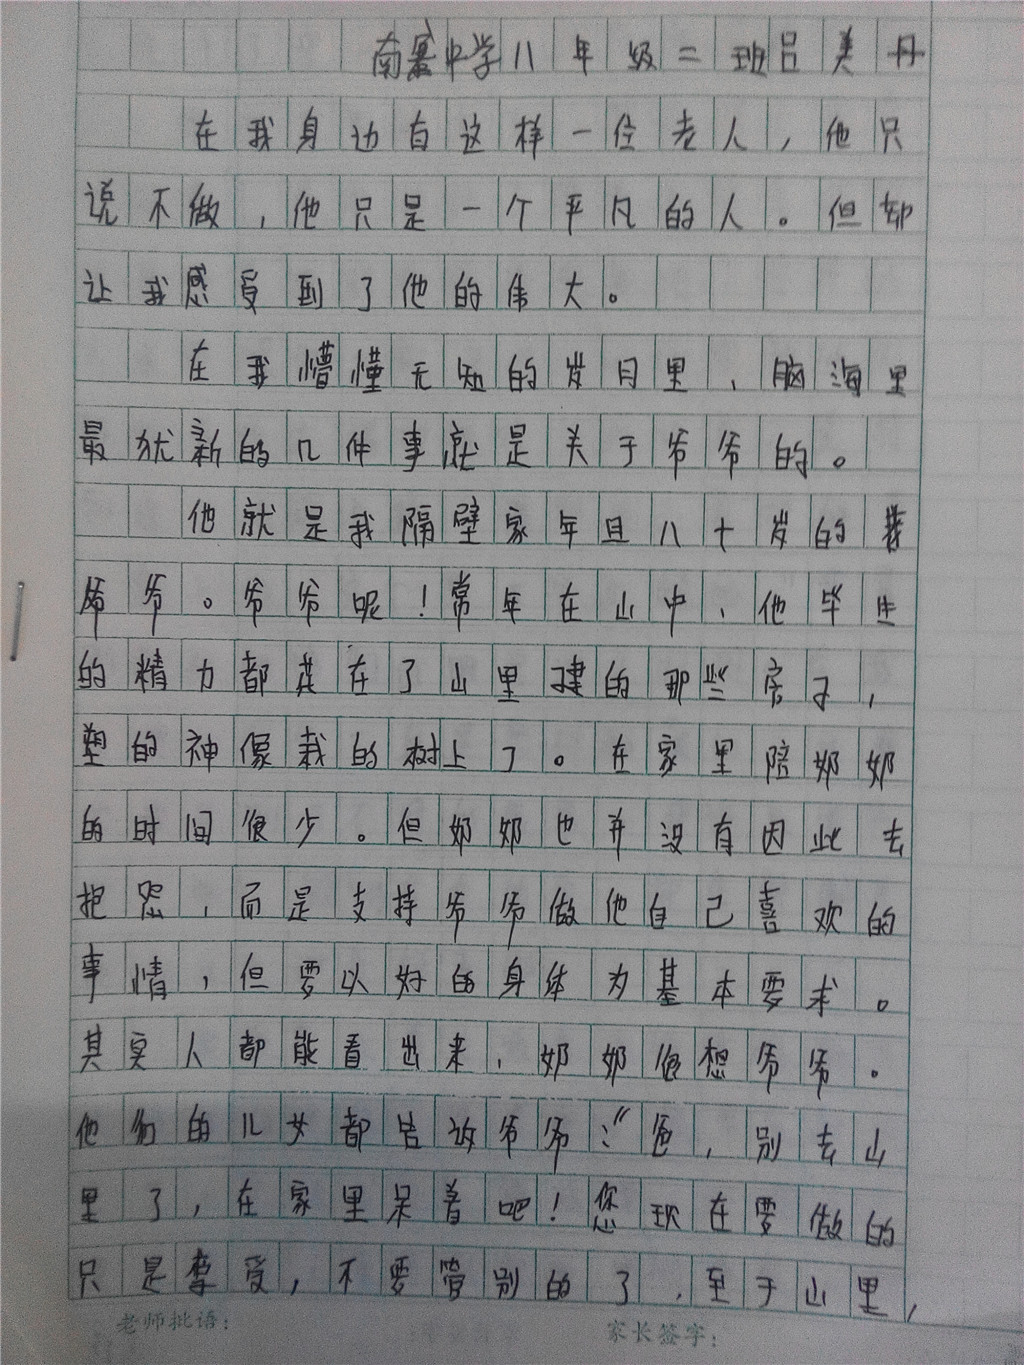 南寨中学八年级二班吕美丹
在我身边有这样一位老人，他只
说不做，他只是一个平凡的人。但却
让我感受到了他的伟大。
在我懵懂无知的岁月里，脑海里
最犹新的几件事就是关于爷爷的。
他就是我隔壁家年旦八十岁的
爷爷。爷爷呢！常年在山中，他毕生
的精力都花在了山里建的那些房子，
塑的神像栽的树上了。在家里陪奶奶
的时间很少。但奶奶也并没有因此去
抱怨，而是支持爷爷做他自己喜欢的
事情，但要以好的身体为基本要求。
其实人都能看出来，奶奶很想爷爷。
他们的儿女都告诉爷爷：“爸，别去山
里了，在家里呆着吧！您现在要做的
只是享受，不要管别的了，至于山里，
老师批语：
家长签字：